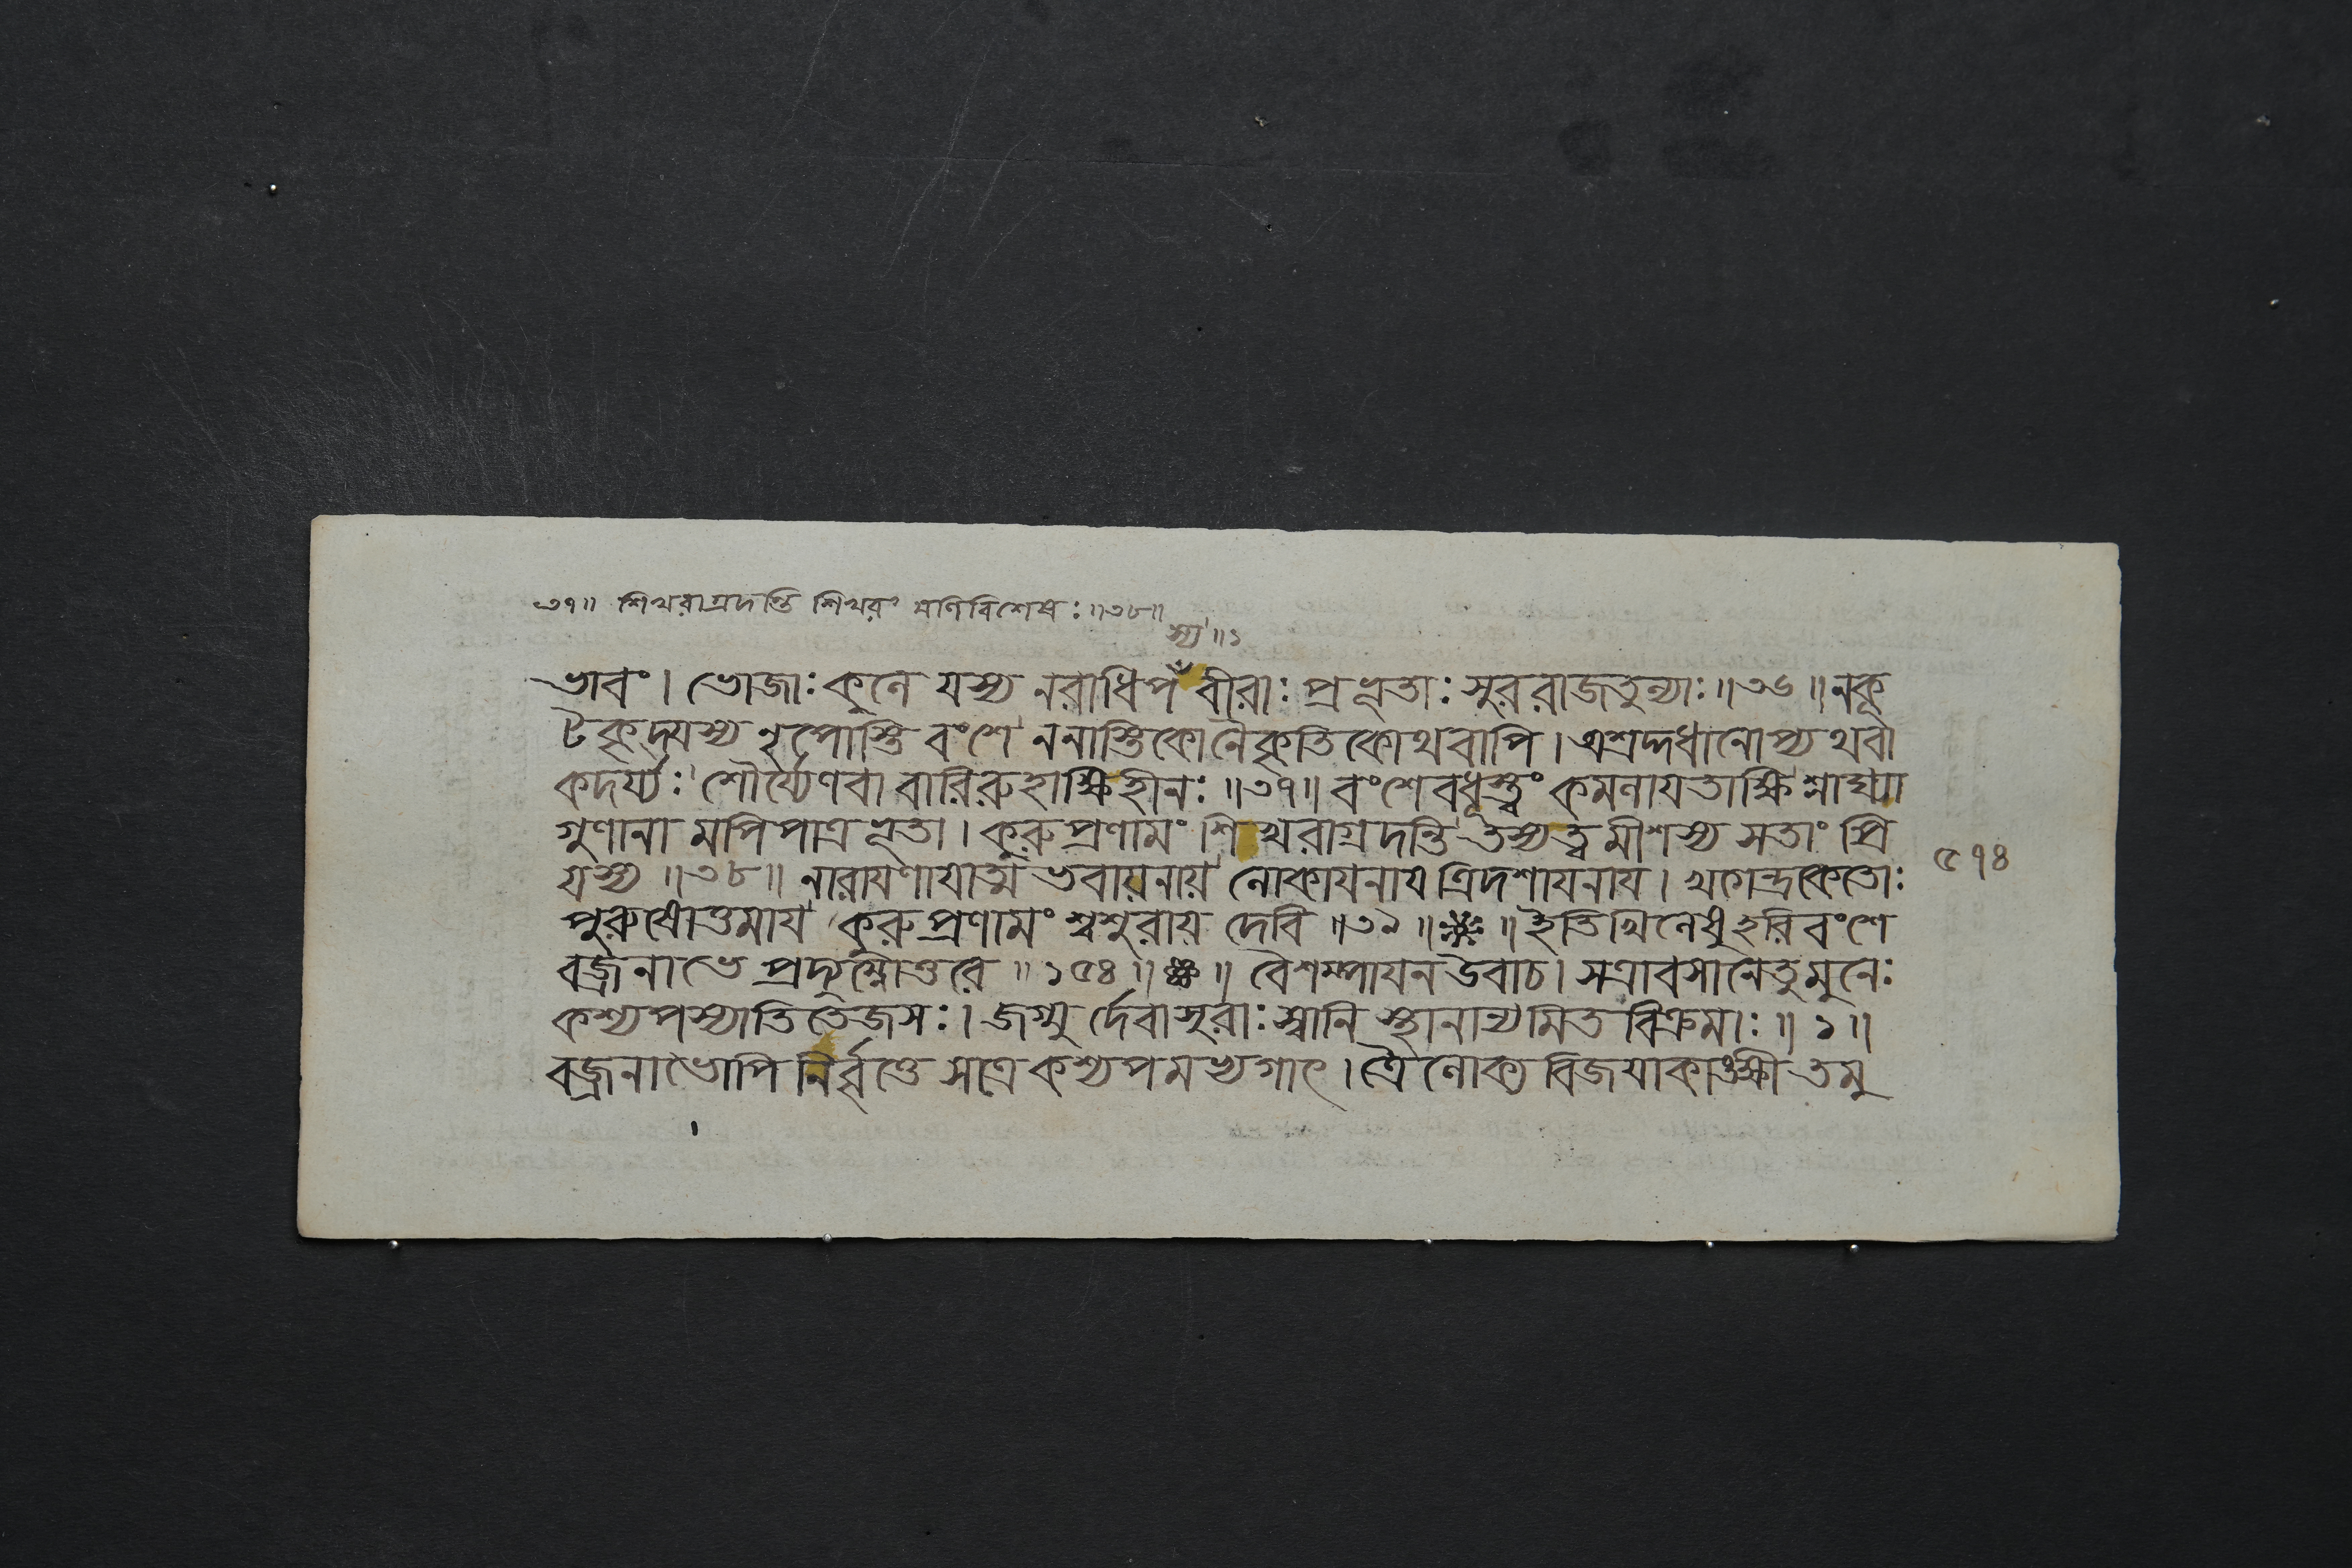 ৩৭॥ শিখরাগ্রদন্তি শিখরং মণিবিশেষঃ॥৩৮॥
স্য॥১
ভাবং। ভোজাঃ কুলে যস্য নরাধিপ বীরাঃ প্রভূতাঃ সুররাজতুল্যাঃ॥৩৬॥নকূ
টকৃদ্যস্য নৃপোস্তি বংশে ননাস্তিকোনৈকৃতিকোথবাপি।অশ্রদ্দধানোপ্যথবা
কদর্য্যঃ শৌর্য্যেণবা বারিরুহাক্ষিহীনঃ॥৩৭॥বংশেবধূস্ত্বং কমলায়তাক্ষি শ্লাঘ্যা
গুণানা মপিপাত্রভূতা। কুরুপ্রণামং শিখরাগ্রদন্তি তস্যত্বমীশস্য সতাং প্রি
যস্য॥৩৮॥ নারাযণাযাত্ম ভবায়নায় লোকাযনায ত্রিদশাযনায। খগেন্দ্রকেতোঃ
৫৭৪
পুরুষোত্তমায কুরুপ্রণামং শ্বশুরায় দেবি॥৩৯॥ ॥ইতিখিলেষুহরিবংশে
বজ্রনাভে প্রদ্যুম্নোত্তরে॥১৫৪॥ ॥ বৈশম্পাযনউবাচ। সত্রাবসানেতুমুনেঃ
কশ্যপস্যাতিতেজসঃ। জগ্মু র্দেবাসুরাঃস্বানি স্থানান্যমিত বিক্রমাঃ॥১॥
বজ্রনাভোপি নির্বৃত্তে সত্রেকশ্যপমভ্যগাৎ।ত্রৈলোক্য বিজযাকাঙ্ক্ষীতমু